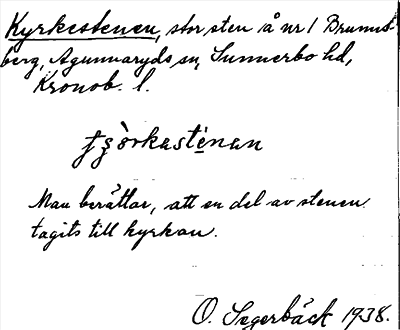 Kyrkestenen, stor sten å nr 1 Brunns-
berg, Agunnaryds sn, Sunnerbo hd,
Kronob. l.
Man berättar, att en del av stenen
tagits till kyrkan.
O. Segerbäck 1938.